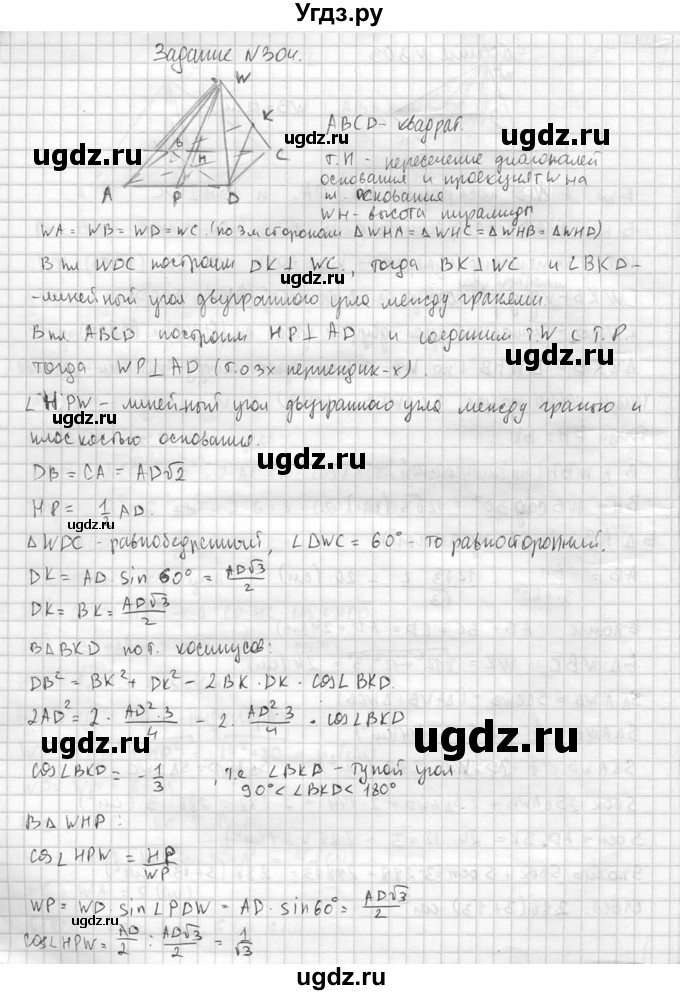 Угдз.ру
Задание №304.
W
K
B
C
H
A
P
D
ABCD - квадрат.
т. H - пересечение диагоналей
основания и проекция т. W на
пл. основания
WH - высота пирамиды
WA = WB = WD = WC. (по 3м сторонам ΔWHA = ΔWHC = ΔWHB = ΔWHD)
В пл WDC построим DK⊥WC, тогда BK⊥WC и ∠BKD -
-линейный угол двугранного угла между гранями.
В пл ABCD построим HP⊥AD и соединим т.W с т.P.
тогда WP⊥AD (т.о 3х перпендик-х).
∠HPW - линейный угол двугранного угла между гранью и
плоскостью основания.
DB = CA = AD√2
HP = 1/2 AD.
ΔWDC - равнобедренный, ∠DWC = 60° - то равносторонний.
DK = AD · sin 60° = AD√3/2
DK = BK = AD√3/2
В ΔBKD по т. косинусов:
DB² = BK² + DK² - 2BK · DK · cos∠BKD.
2AD² = 2 · AD²·3/4 - 2 · AD²·3/4 · cos∠BKD
cos∠BKD = -1/3, т.е ∠BKD - тупой угол
90° < ∠BKD < 180°
В ΔWHP:
cos∠HPW = HP/WP
WP = WD · sin∠PDW = AD · sin60° = AD√3/2
cos∠HPW = AD/2 : AD√3/2 = 1/√3
ugdz.ru
ugdz.ru
ugdz.ru
ugdz.ru
ugdz.ru
ugdz.ru
ugdz.ru
ugdz.ru
ugdz.ru
ugdz.ru
ugdz.ru
ugdz.ru
ugdz.ru